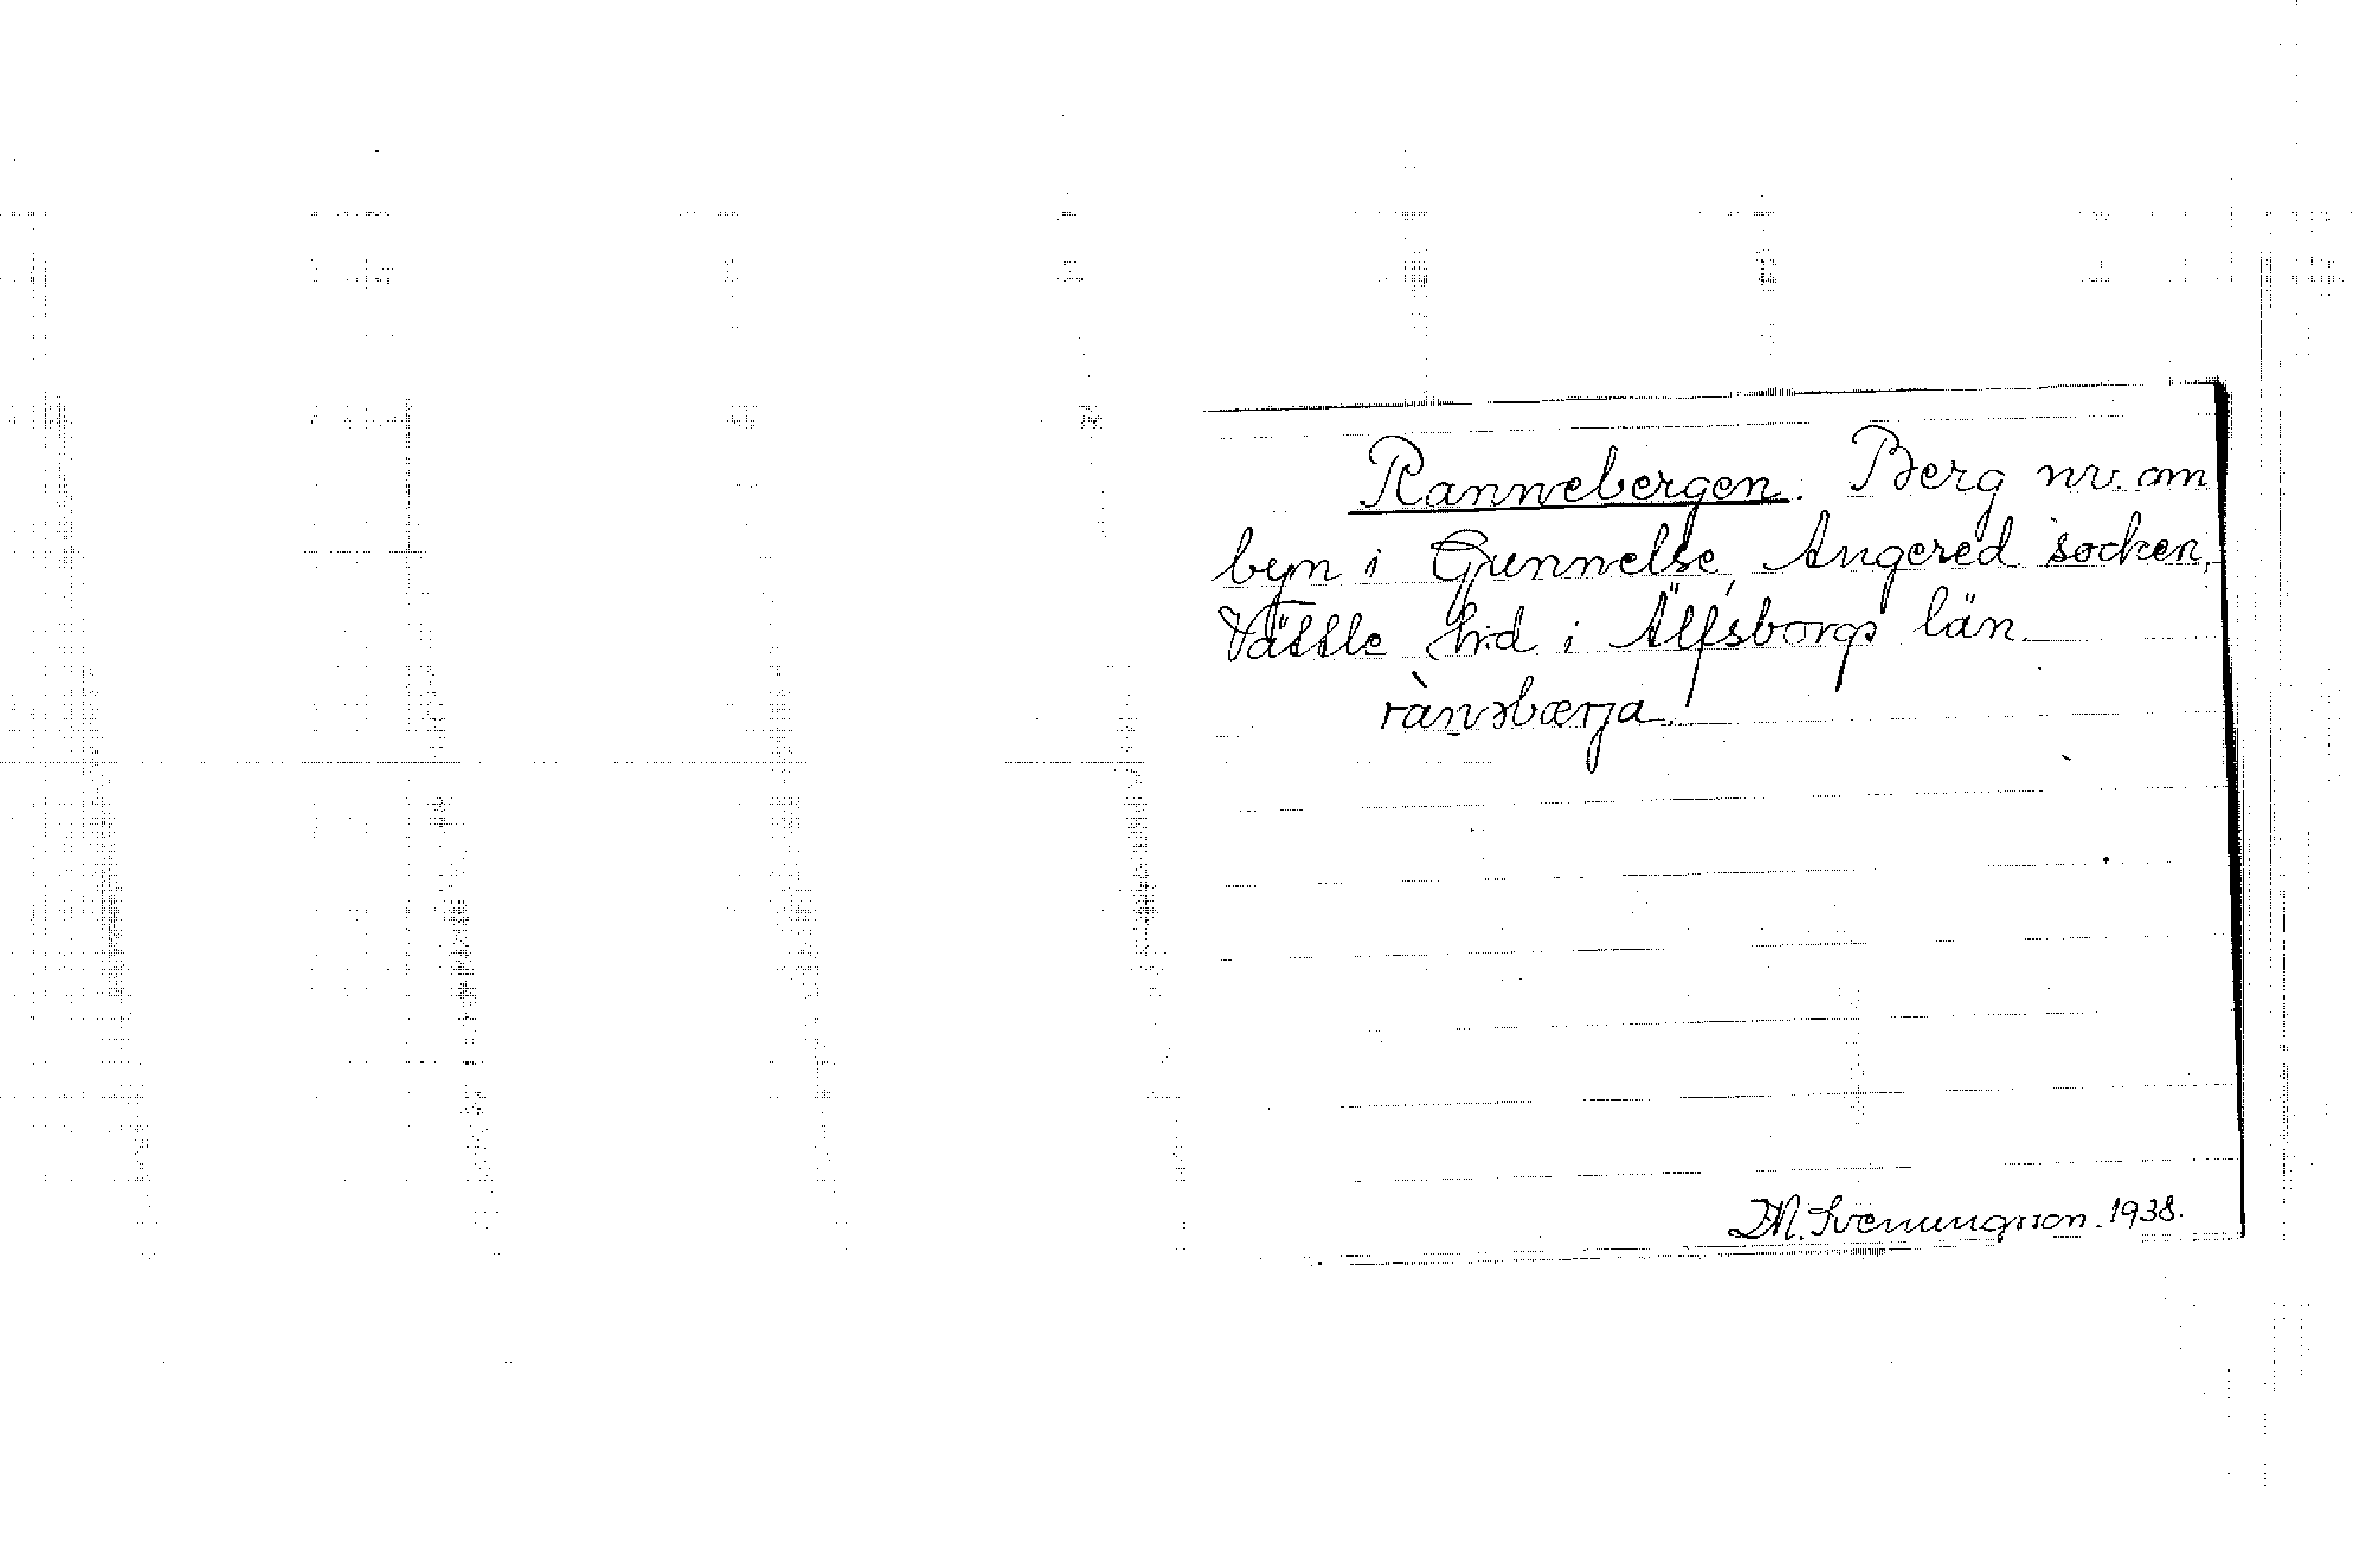 Rannebergen. Berg nv. om
byn i Gunnelse, Angered socken,
Vättle hd i Älfsborgs län.
rànəbærja.
M. Svenungsson 1938.